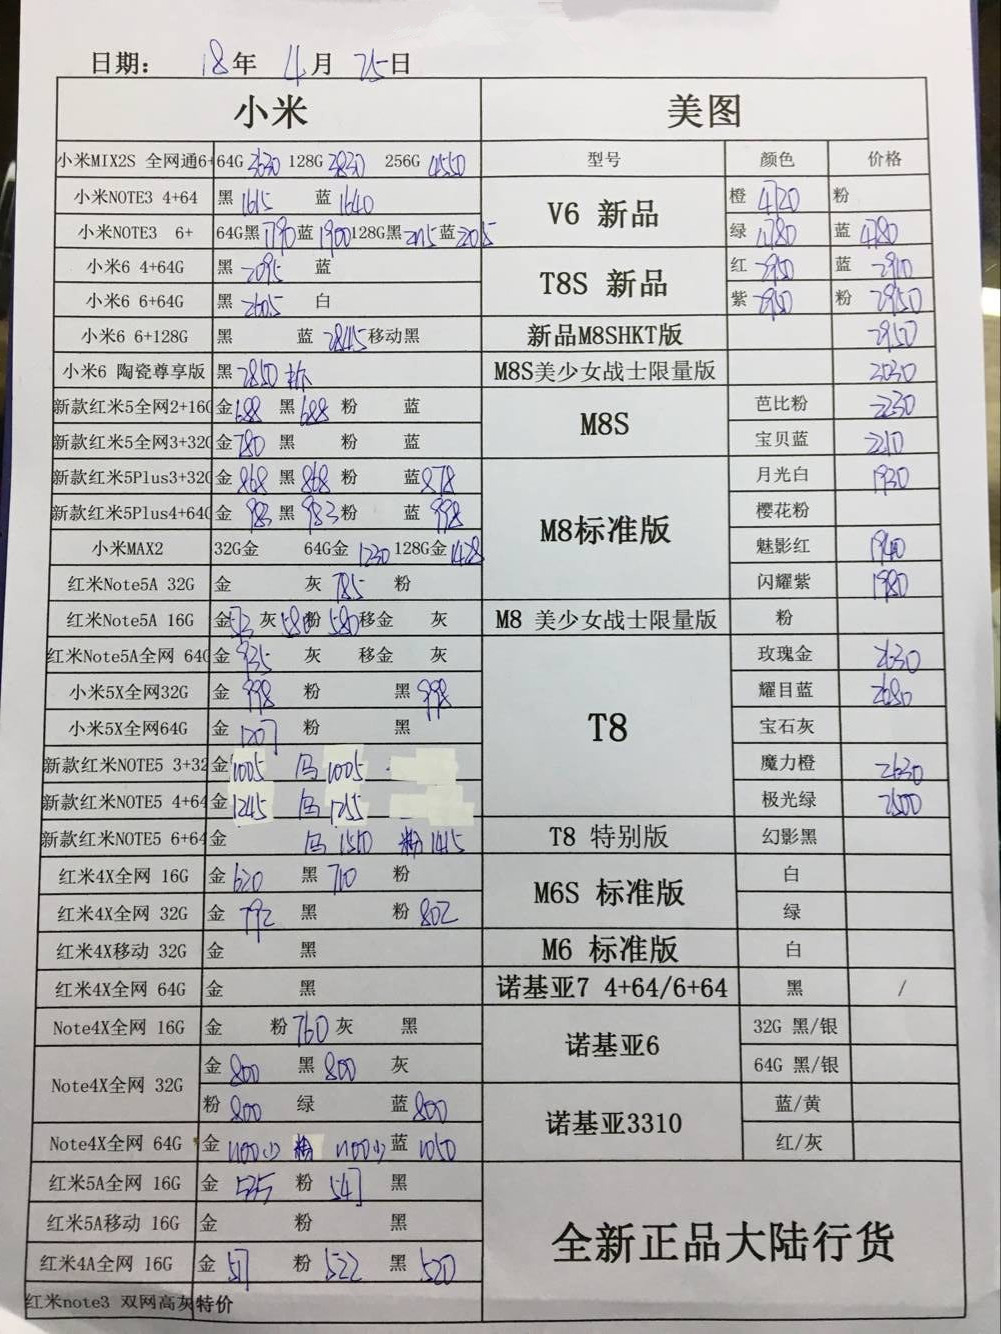 日期： 18年 4月 25日
小米 美图
小米MIX2S 全网通6+ 64G 3630 128G 3830 256G 4550
型号 颜色 价格
小米NOTE3 4+64 黑 1615 蓝 1640
V6 新品 橙 4720 粉
小米NOTE3 6+ 64G黑 1790 蓝 1900 128G黑 2015 蓝 2015
绿 4780 蓝 4780
小米6 4+64G 黑 2095 蓝
T8S 新品 红 2950 蓝 2910
小米6 6+64G 黑 2605 白
紫 2950 粉 2950
小米6 6+128G 黑 蓝 2845 移动黑
新品M8SHKT版 2950
小米6 陶瓷尊享版 黑 2850
M8S美少女战士限量版 2030
新款红米5全网2+16G 金 688 黑 688 粉 蓝
M8S 芭比粉 2230
新款红米5全网3+32G 金 780 黑 粉 蓝
宝贝蓝 2210
新款红米5Plus3+32G 金 868 黑 868 粉 蓝 878
M8标准版 月光白 1930
新款红米5Plus4+64G 金 983 黑 983 粉 蓝 998
樱花粉
小米MAX2 32G金 64G金 1230 128G金 1428
魅影红 1940
红米Note5A 32G 金 灰 785 粉
闪耀紫 1980
红米Note5A 16G 金 灰 580 粉 580 移金 灰
M8 美少女战士限量版 粉
红米Note5A全网 64G 金 935 灰 移金 灰
T8 玫瑰金 2630
小米5X全网32G 金 998 粉 黑 998
耀目蓝 2680
小米5X全网64G 金 1207 粉 黑
宝石灰
新款红米NOTE5 3+32 金 1005 1005
魔力橙 2630
新款红米NOTE5 4+64 金 1245 1255
极光绿 2500
新款红米NOTE5 6+64 金 1510 粉 1415
T8 特别版 幻影黑
红米4X全网 16G 金 620 黑 710 粉
M6S 标准版 白
红米4X全网 32G 金 792 黑 粉 802
绿
红米4X移动 32G 金 黑
M6 标准版 白
红米4X全网 64G 金 黑
诺基亚7 4+64/6+64 黑 /
Note4X全网 16G 金 粉 760 灰 黑
诺基亚6 32G 黑/银
Note4X全网 32G 金 800 黑 800 灰
64G 黑/银
粉 800 绿 蓝 800
诺基亚3310 蓝/黄
Note4X全网 64G 金 1100小 粉 1100小 蓝 1050
红/灰
红米5A全网 16G 金 535 粉 547 黑
红米5A移动 16G 金 粉 黑
全新正品大陆行货
红米4A全网 16G 金 517 粉 522 黑 520
红米note3 双网高灰特价